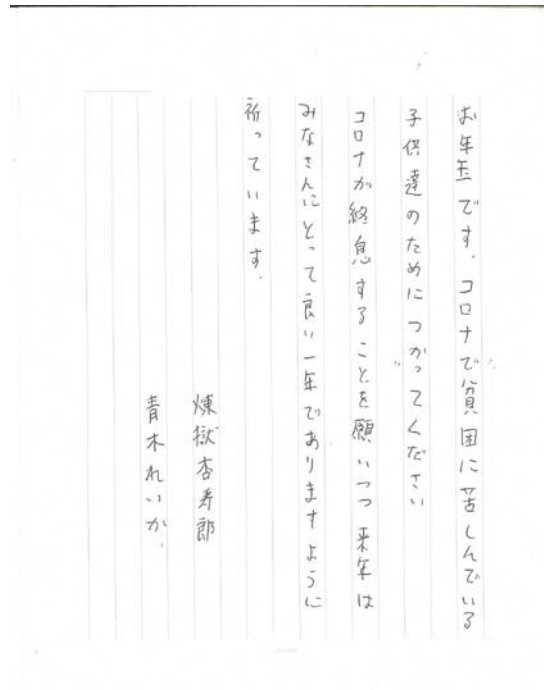 お年玉です．コロナで貧困に苦しんでいる
子供達のためにつかってください
コロナが終息することを願いつつ来年は
みなさんにとって良い一年でありますように
祈っています．
煉獄杏寿郎
青木れいか．